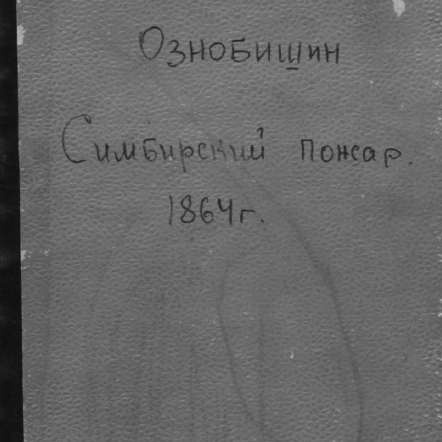 Ознобишин
Симбирский пожар.
1864г.